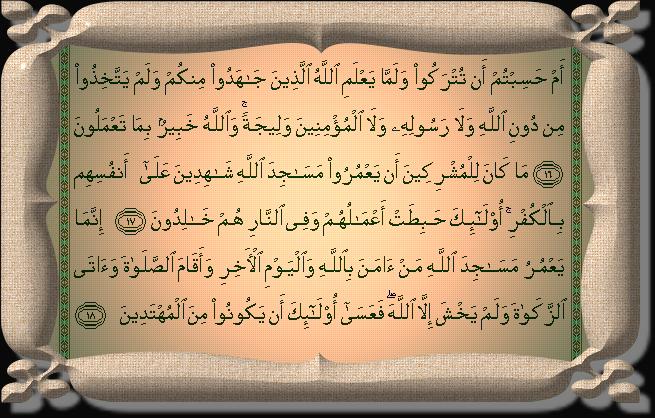 أَمْ حَسِبْتُمْ أَن تُتْرَكُوا۟ وَلَمَّا يَعْلَمِ ٱللَّهُ ٱلَّذِينَ جَـٰهَدُوا۟ مِنكُمْ وَلَمْ يَتَّخِذُوا۟
مِن دُونِ ٱللَّهِ وَلَا رَسُولِهِۦ وَلَا ٱلْمُؤْمِنِينَ وَلِيجَةًۚ وَٱللَّهُ خَبِيرٌۢ بِمَا تَعْمَلُونَ
١٦ مَا كَانَ لِلْمُشْرِكِينَ أَن يَعْمُرُوا۟ مَسَـٰجِدَ ٱللَّهِ شَـٰهِدِينَ عَلَىٰٓ أَنفُسِهِم
بِٱلْكُفْرِۚ أُو۟لَـٰٓئِكَ حَبِطَتْ أَعْمَـٰلُهُمْ وَفِى ٱلنَّارِ هُمْ خَـٰلِدُونَ ١٧ إِنَّمَا
يَعْمُرُ مَسَـٰجِدَ ٱللَّهِ مَنْ ءَامَنَ بِٱللَّهِ وَٱلْيَوْمِ ٱلْأَخِرِ وَأَقَامَ ٱلصَّلَوٰةَ وَءَاتَى
ٱلزَّكَوٰةَ وَلَمْ يَخْشَ إِلَّا ٱللَّهَۖ فَعَسَىٰٓ أُو۟لَـٰٓئِكَ أَن يَكُونُوا۟ مِنَ ٱلْمُهْتَدِينَ ١٨